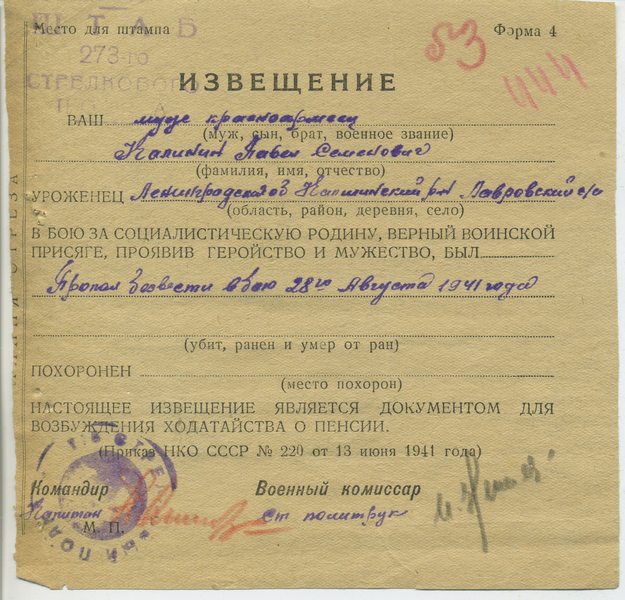 Место для штампа
Форма 4
ШТАБ
273-го
СТРЕЛКОВОГО
53
444
ИЗВЕЩЕНИЕ
ВАШ муж красноармеец
(муж, сын, брат, военное звание)
Калинин Павел Семенович
(фамилия, имя, отчество)
УРОЖЕНЕЦ Ленинградской Капшинский р-н Лавровский с/с
(область, район, деревня, село)
В БОЮ ЗА СОЦИАЛИСТИЧЕСКУЮ РОДИНУ, ВЕРНЫЙ ВОИНСКОЙ
ПРИСЯГЕ, ПРОЯВИВ ГЕРОЙСТВО И МУЖЕСТВО, БЫЛ
Пропал безвести в бою 28го Августа 1941 года
(убит, ранен и умер от ран)
ПОХОРОНЕН
(место похорон)
НАСТОЯЩЕЕ ИЗВЕЩЕНИЕ ЯВЛЯЕТСЯ ДОКУМЕНТОМ ДЛЯ
ВОЗБУЖДЕНИЯ ХОДАТАЙСТВА О ПЕНСИИ.
(Приказ НКО СССР № 220 от 13 июня 1941 года)
Командир
Военный комиссар
Капитан
ст политрук
М. П.